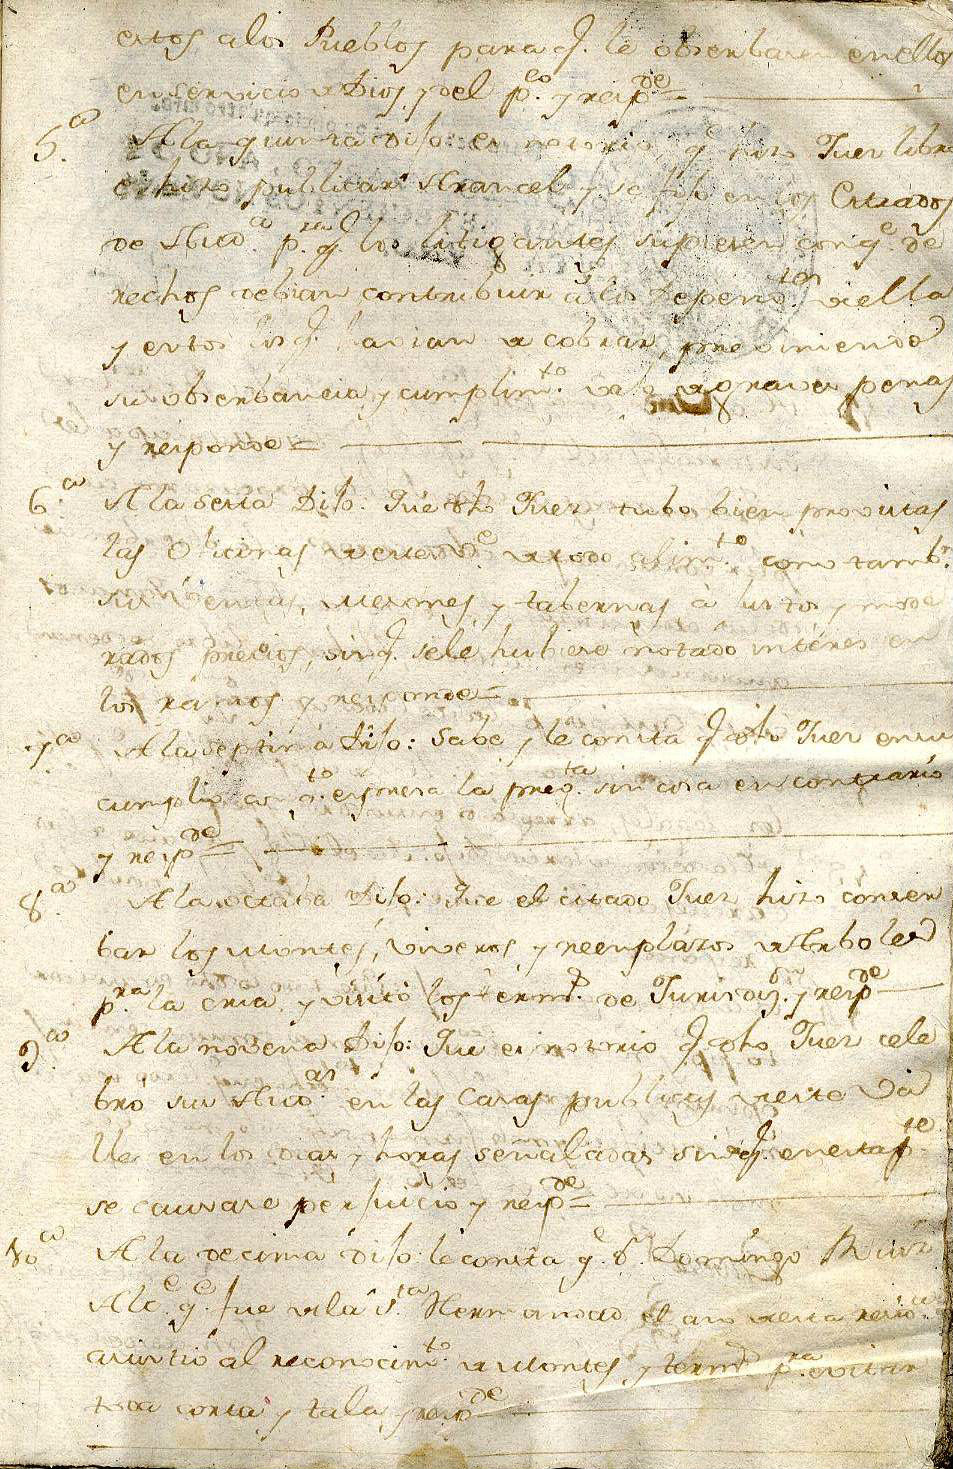 estos a los Pueblos para q.e se observasen en ellos
en servicio de Dios y del p.co y resp.de =
5.a A la quinta Dijo: es notorio q.e dho Juez libro
e hizo publicar Arancel y se fijo en los Estrados
de Aud.a p.ra q.e los litigantes supiesen con q.e de
rechos debian contribuir a los Depend.tes de ella
y estos los q.e havian de cobrar, previniendo
su observancia y cumplim.to vajo de graves penas
y responde =
6.a A la sexta Dijo: Que dho Juez tubo bien provistas
las Oficinas de este V.e de todo alim.to como tamb.n
sus Ventas, Mesones, y tabernas a justos y mode
rados precios, sin q.e se le hubiese notado interes en
los ramos y responde =
7.a A la septima Dijo: Save y le consta q.e dho Juez en su
cumplio con q.to expresa la preg.ta sin cosa en contrario
y resp.de =
8.a A la octaba Dijo: Que el citado Juez hizo conser
bar los Montes, viveros, y reemplazos de Arboled
p.ra la cria, y visitó los term.s de Jurisdiz.n y resp.de
9.a A la novena Dijo: Que es notorio q.e dho Juez cele
bró sus Aud.as en las Casas publicas de este Va
lle en los dias y horas señaladas sin q.e en esta p.te
se causase perjuicio y resp.de =
10.a A la decima dijo: le consta q.e D.n Domingo Ruiz
Alc.e q.e fue de la S.ta Hermandad el año de esta resid.a
asistió al reconocim.to de Montes, y term.s p.ra evitar
toda corta y tala, y resp.de =